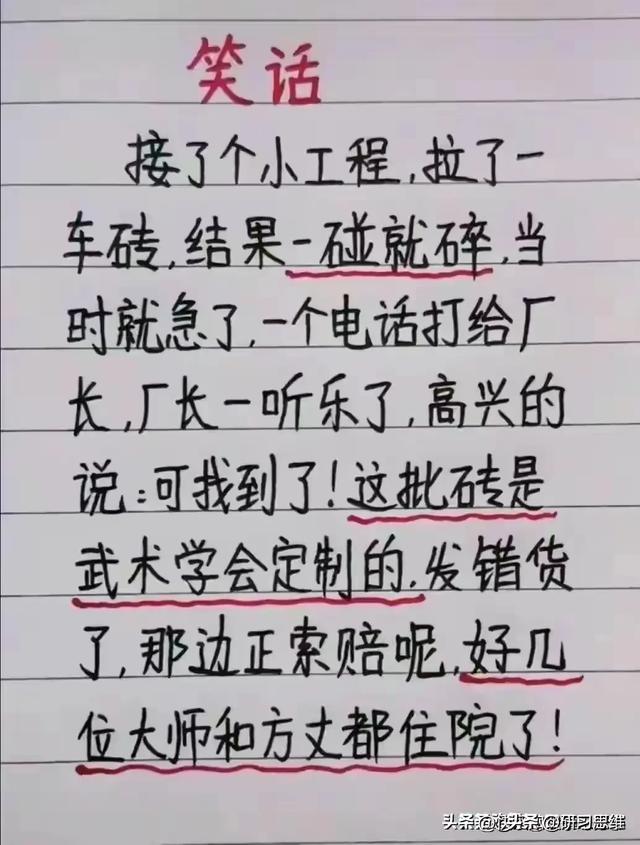 笑话
接了个小工程,拉了一
车砖,结果一碰就碎,当
时就急了,一个电话打给厂
长,厂长一听乐了,高兴的
说:可找到了!这批砖是
武术学会定制的.发错货
了,那边正索赔呢,好几
位大师和方丈都住院了!
头条 @研习思维